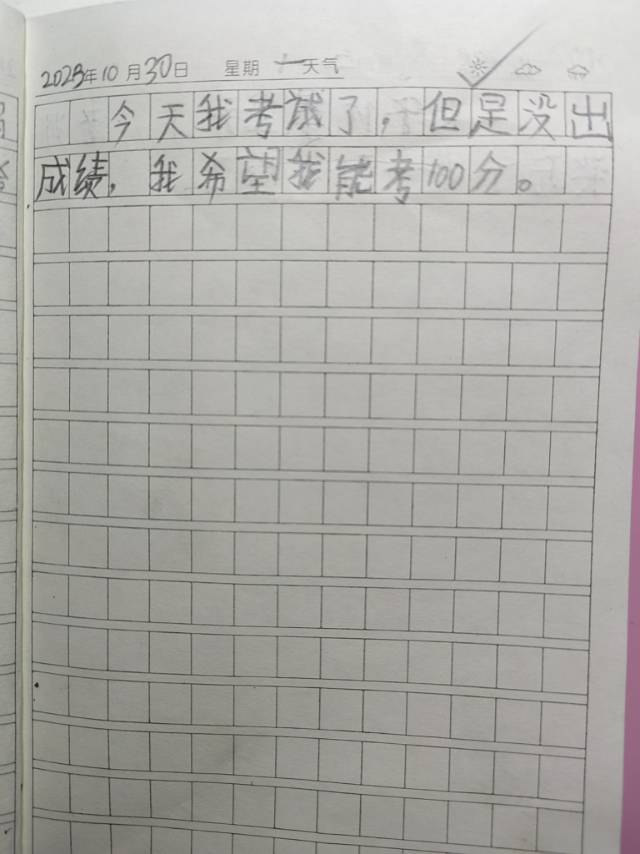 2023年10月30日 星期一天气
今天我考试了，但是没出
成绩，我希望我能考100分。